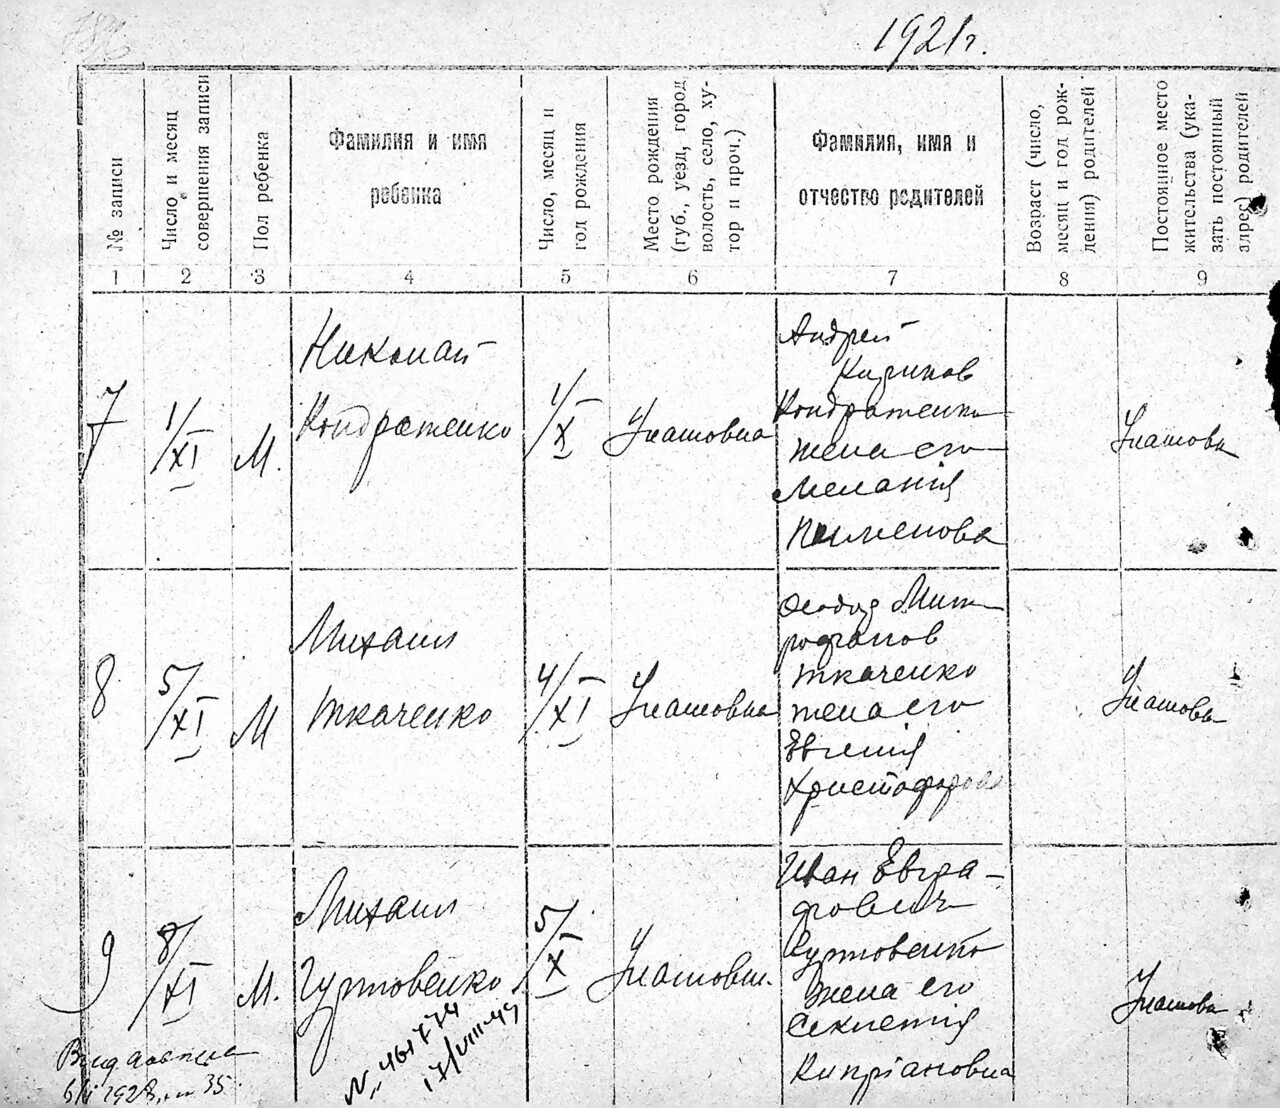 1921г.
№ записи
Число и месяц
совершения записи
Пол ребенка
Фамилия и имя
ребенка
Число, месяц и
год рождения
Место рождения
(губ., уезд, город,
волость, село, ху-
тор и проч.)
Фамилия, имя и
отчество родителей
Возраст (число,
месяц и год рож-
дения) родителей
Постоянное место
жительства (ука-
зать постоянный
адрес) родителей
1 2 3 4 5 6 7 8 9
7
1/XI
М.
Николай
Кондратенко
1/X
Игнатовка
Андрей
Кириков
Кондратенко
жена его
Мелания
Пименова
8
5/XI
М
Михаил
Ткаченко
4/XI
Игнатовка
Мит-
рофанов
Ткаченко
жена его
Евгения
Христофоров
9
8/XI
М.
Михаил
Гуртовенко
5/X
Игнатовка
Иван Евгра-
фович
Гуртовенко
жена его
Киприановна
№ 461774
17/VIII-49
1928, № 35